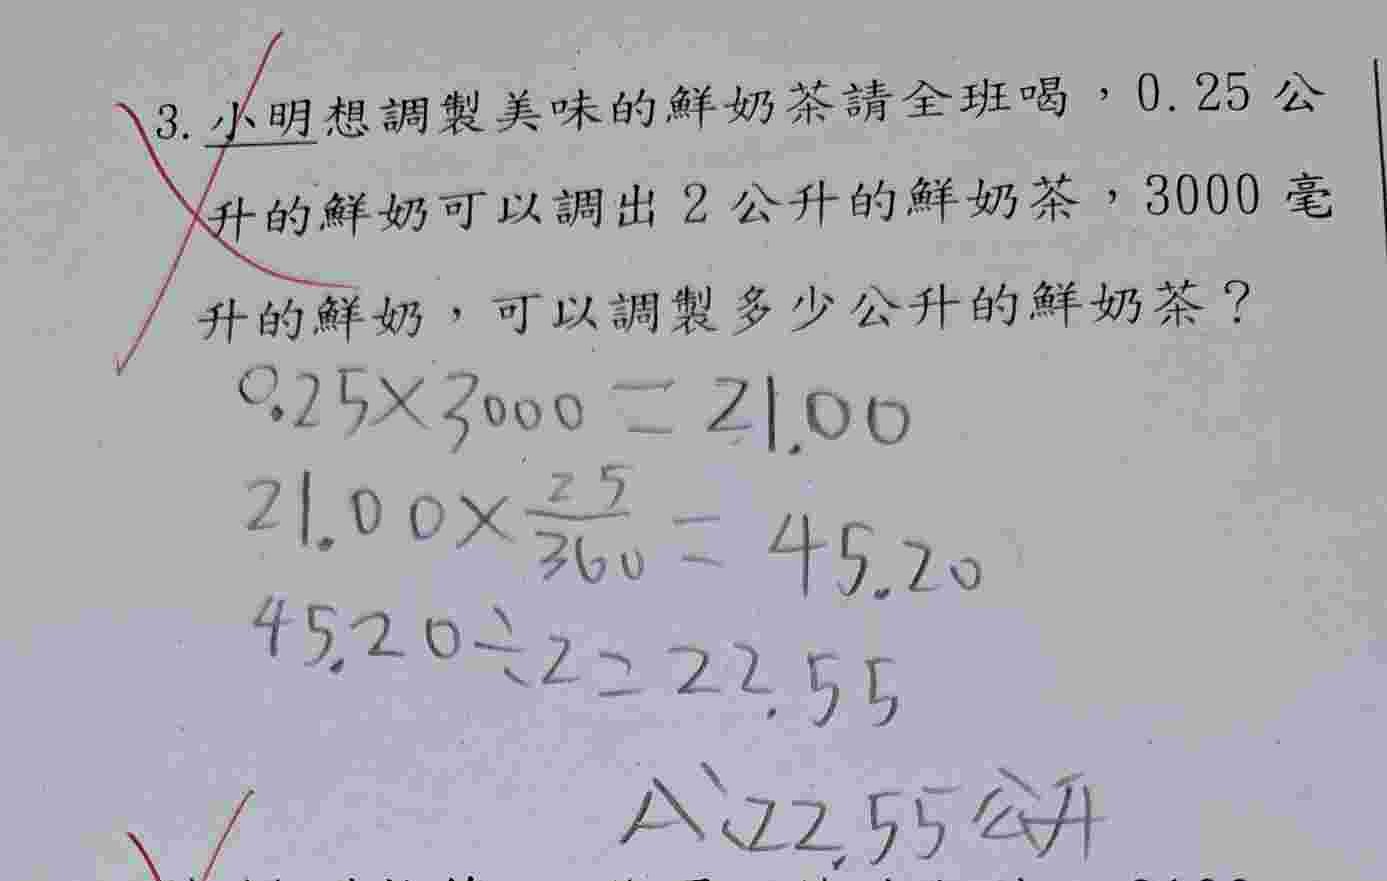 3. 小明想調製美味的鮮奶茶請全班喝，0.25 公
升的鮮奶可以調出 2 公升的鮮奶茶，3000 毫
升的鮮奶，可以調製多少公升的鮮奶茶？
0.25×3000=21.00
21.00×25/360=45.20
45.20÷2=22.55
A:22.55公升